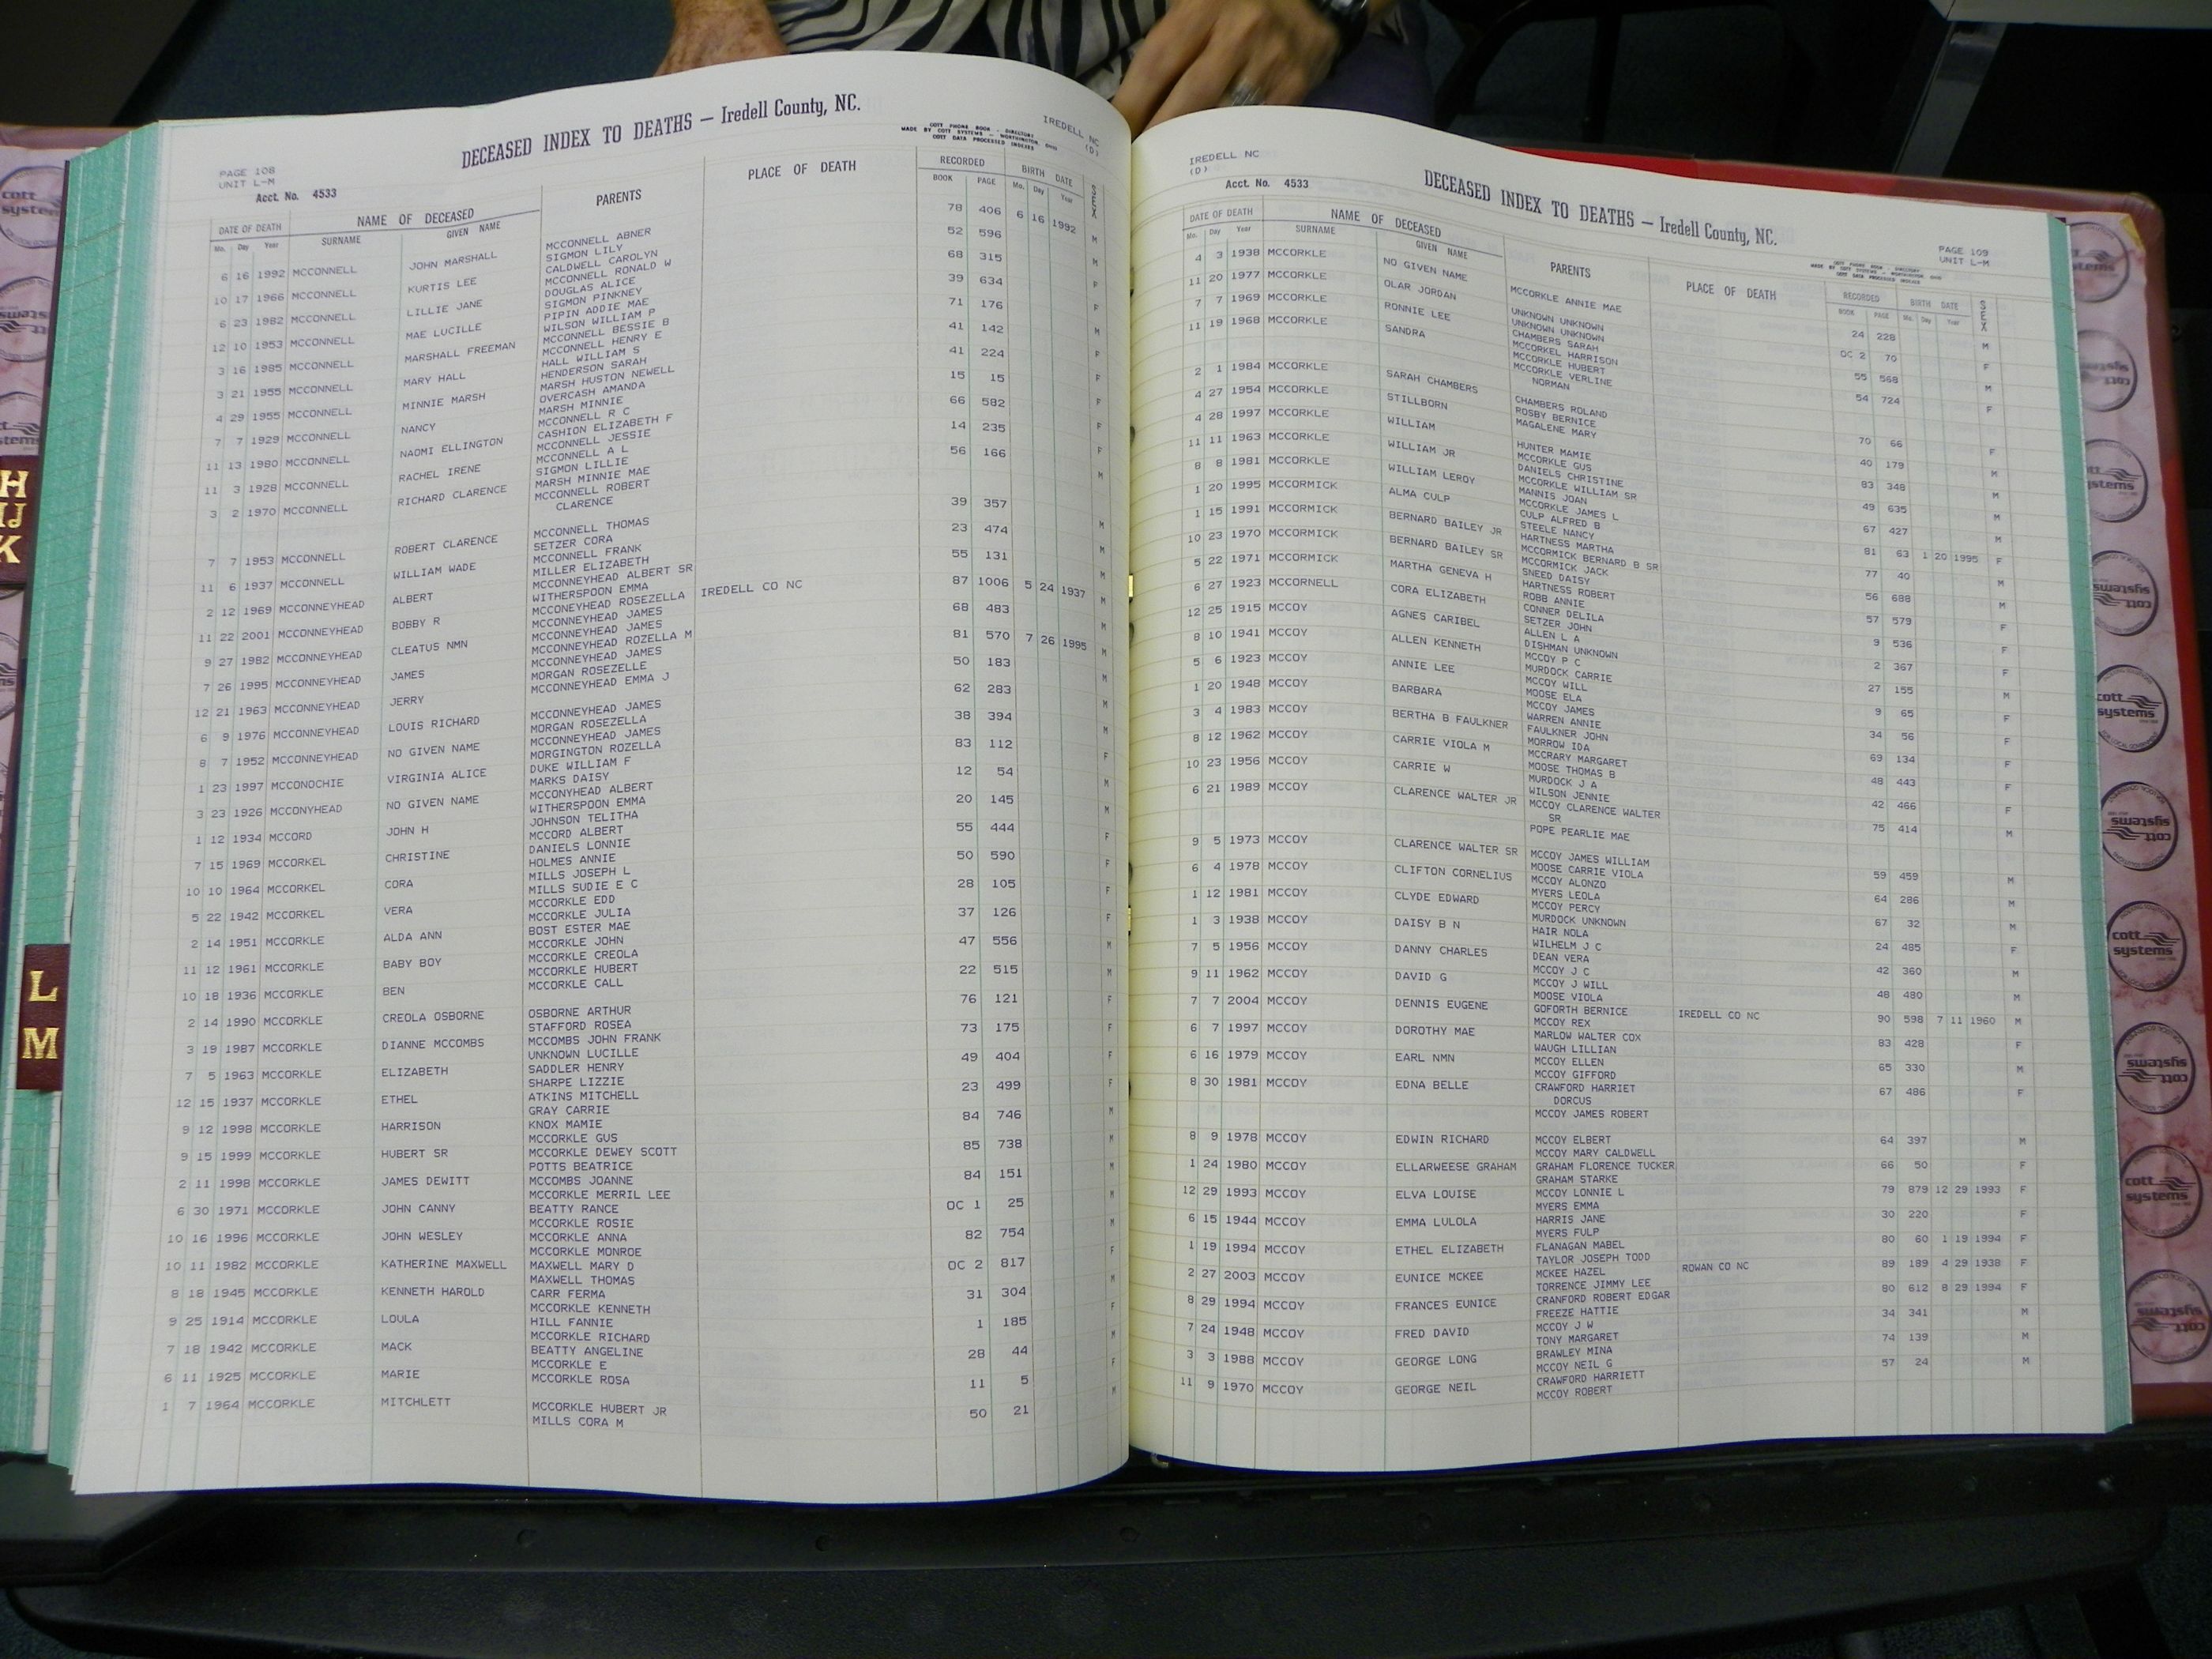 DECEASED INDEX TO DEATHS — Iredell County, NC.
IREDELL NC
(D)
COTT PHONE BOOK - DIRECTORY
MADE BY COTT SYSTEMS - WORTHINGTON, OHIO
COTT DATA PROCESSED INDEXES
PAGE 108
UNIT L-M
Acct. No. 4533
DATE OF DEATH NAME OF DECEASED PARENTS PLACE OF DEATH RECORDED BIRTH DATE SEX
Mo. Day Year SURNAME GIVEN NAME BOOK PAGE Mo. Day Year
6 16 1992 MCCONNELL JOHN MARSHALL MCCONNELL ABNER 78 406 6 16 1992 M
SIGMON LILY
10 17 1966 MCCONNELL KURTIS LEE CALDWELL CAROLYN 52 596 M
MCCONNELL RONALD W
6 23 1982 MCCONNELL LILLIE JANE DOUGLAS ALICE 68 315 F
SIGMON PINKNEY
12 10 1953 MCCONNELL MAE LUCILLE PIPIN ADDIE MAE 39 634 F
WILSON WILLIAM P
3 16 1985 MCCONNELL MARSHALL FREEMAN MCCONNELL BESSIE B 71 176 M
MCCONNELL HENRY E
3 21 1955 MCCONNELL MARY HALL HALL WILLIAM S 41 142 F
HENDERSON SARAH
4 29 1955 MCCONNELL MINNIE MARSH MARSH HUSTON NEWELL 41 224 F
OVERCASH AMANDA
7 7 1929 MCCONNELL NANCY MARSH MINNIE 15 15 F
MCCONNELL R C
11 13 1980 MCCONNELL NAOMI ELLINGTON CASHION ELIZABETH F 66 582 F
MCCONNELL JESSIE
11 3 1928 MCCONNELL RACHEL IRENE MCCONNELL A L 14 235 F
SIGMON LILLIE
3 2 1970 MCCONNELL RICHARD CLARENCE MARSH MINNIE MAE 56 166 M
MCCONNELL ROBERT
CLARENCE
7 7 1953 MCCONNELL ROBERT CLARENCE MCCONNELL THOMAS 39 357 M
SETZER CORA
11 6 1937 MCCONNELL WILLIAM WADE MCCONNELL FRANK 23 474 M
MILLER ELIZABETH
2 12 1969 MCCONNEYHEAD ALBERT MCCONNEYHEAD ALBERT SR 55 131 M
WITHERSPOON EMMA
11 22 2001 MCCONNEYHEAD BOBBY R MCCONEYHEAD ROSEZELLA IREDELL CO NC 87 1006 5 24 1937 M
MCCONNEYHEAD JAMES
9 27 1982 MCCONNEYHEAD CLEATUS NMN MCCONNEYHEAD JAMES 68 483 M
MCCONNEYHEAD ROZELLA M
7 26 1995 MCCONNEYHEAD JAMES MCCONNEYHEAD JAMES 81 570 7 26 1995 M
MORGAN ROSEZELLE
12 21 1963 MCCONNEYHEAD JERRY MCCONNEYHEAD EMMA J 50 183 M
6 9 1976 MCCONNEYHEAD LOUIS RICHARD MCCONNEYHEAD JAMES 62 283 M
MORGAN ROSEZELLA
8 7 1952 MCCONNEYHEAD NO GIVEN NAME MCCONNEYHEAD JAMES 38 394 M
MORGINGTON ROZELLA
1 23 1997 MCCONOCHIE VIRGINIA ALICE DUKE WILLIAM F 83 112 F
MARKS DAISY
3 23 1926 MCCONYHEAD NO GIVEN NAME MCCONYHEAD ALBERT 12 54 M
WITHERSPOON EMMA
1 12 1934 MCCORD JOHN H JOHNSON TELITHA 20 145 M
MCCORD ALBERT
7 15 1969 MCCORKEL CHRISTINE DANIELS LONNIE 55 444 F
HOLMES ANNIE
10 10 1964 MCCORKEL CORA MILLS JOSEPH L 50 590 F
MILLS SUDIE E C
5 22 1942 MCCORKEL VERA MCCORKLE EDD 28 105 F
MCCORKLE JULIA
2 14 1951 MCCORKLE ALDA ANN BOST ESTER MAE 37 126 F
MCCORKLE JOHN
11 12 1961 MCCORKLE BABY BOY MCCORKLE CREOLA 47 556 M
MCCORKLE HUBERT
10 18 1936 MCCORKLE BEN MCCORKLE CALL 22 515 M
2 14 1990 MCCORKLE CREOLA OSBORNE OSBORNE ARTHUR 76 121 F
STAFFORD ROSEA
3 19 1987 MCCORKLE DIANNE MCCOMBS MCCOMBS JOHN FRANK 73 175 F
UNKNOWN LUCILLE
7 5 1963 MCCORKLE ELIZABETH SADDLER HENRY 49 404 F
SHARPE LIZZIE
12 15 1937 MCCORKLE ETHEL ATKINS MITCHELL 23 499 F
GRAY CARRIE
9 12 1998 MCCORKLE HARRISON KNOX MAMIE 84 746 M
MCCORKLE GUS
9 15 1999 MCCORKLE HUBERT SR MCCORKLE DEWEY SCOTT 85 738 M
POTTS BEATRICE
2 11 1998 MCCORKLE JAMES DEWITT MCCOMBS JOANNE 84 151 M
MCCORKLE MERRIL LEE
6 30 1971 MCCORKLE JOHN CANNY BEATTY RANCE OC 1 25 M
MCCORKLE ROSIE
10 16 1996 MCCORKLE JOHN WESLEY MCCORKLE ANNA 82 754 M
MCCORKLE MONROE
10 11 1982 MCCORKLE KATHERINE MAXWELL MAXWELL MARY D OC 2 817 F
MAXWELL THOMAS
8 18 1945 MCCORKLE KENNETH HAROLD CARR FERMA 31 304 M
MCCORKLE KENNETH
9 25 1914 MCCORKLE LOULA HILL FANNIE 1 185 F
MCCORKLE RICHARD
7 18 1942 MCCORKLE MACK BEATTY ANGELINE 28 44 M
MCCORKLE E
6 11 1925 MCCORKLE MARIE MCCORKLE ROSA 11 5 F
1 7 1964 MCCORKLE MITCHLETT MCCORKLE HUBERT JR 50 21 M
MILLS CORA M
IREDELL NC
(D)
DECEASED INDEX TO DEATHS — Iredell County, NC.
Acct. No. 4533
PAGE 109
UNIT L-M
COTT PHONE BOOK - DIRECTORY
MADE BY COTT SYSTEMS - WORTHINGTON, OHIO
COTT DATA PROCESSED INDEXES
DATE OF DEATH NAME OF DECEASED PARENTS PLACE OF DEATH RECORDED BIRTH DATE SEX
Mo. Day Year SURNAME GIVEN NAME BOOK PAGE Mo. Day Year
4 3 1938 MCCORKLE NO GIVEN NAME MCCORKLE ANNIE MAE 24 228 M
11 20 1977 MCCORKLE OLAR JORDAN UNKNOWN UNKNOWN OC 2 70 F
UNKNOWN UNKNOWN
7 7 1969 MCCORKLE RONNIE LEE CHAMBERS SARAH 55 568 M
MCCORKEL HARRISON
11 19 1968 MCCORKLE SANDRA MCCORKLE HUBERT 54 724 F
MCCORKLE VERLINE
NORMAN
2 1 1984 MCCORKLE SARAH CHAMBERS CHAMBERS ROLAND 70 66 F
ROSBY BERNICE
4 27 1954 MCCORKLE STILLBORN MAGALENE MARY 40 179 M
4 28 1997 MCCORKLE WILLIAM HUNTER MAMIE 83 348 M
MCCORKLE GUS
11 11 1963 MCCORKLE WILLIAM JR DANIELS CHRISTINE 49 635 M
MCCORKLE WILLIAM SR
8 8 1981 MCCORKLE WILLIAM LEROY MANNIS JOAN 67 427 M
MCCORKLE JAMES L
1 20 1995 MCCORMICK ALMA CULP CULP ALFRED B 81 63 1 20 1995 F
STEELE NANCY
1 15 1991 MCCORMICK BERNARD BAILEY JR HARTNESS MARTHA 77 40 M
MCCORMICK BERNARD B SR
10 23 1970 MCCORMICK BERNARD BAILEY SR MCCORMICK JACK 56 688 M
SNEED DAISY
5 22 1971 MCCORMICK MARTHA GENEVA H HARTNESS ROBERT 57 579 F
ROBB ANNIE
6 27 1923 MCCORNELL CORA ELIZABETH CONNER DELILA 9 536 F
SETZER JOHN
12 25 1915 MCCOY AGNES CARIBEL ALLEN L A 2 367 F
DISHMAN UNKNOWN
8 10 1941 MCCOY ALLEN KENNETH MCCOY P C 27 155 M
MURDOCK CARRIE
5 6 1923 MCCOY ANNIE LEE MCCOY WILL 9 65 F
MOOSE ELA
1 20 1948 MCCOY BARBARA MCCOY JAMES 34 56 F
WARREN ANNIE
3 4 1983 MCCOY BERTHA B FAULKNER FAULKNER JOHN 69 134 F
MORROW IDA
8 12 1962 MCCOY CARRIE VIOLA M MCCRARY MARGARET 48 443 F
MOOSE THOMAS B
10 23 1956 MCCOY CARRIE W MURDOCK J A 42 466 F
WILSON JENNIE
6 21 1989 MCCOY CLARENCE WALTER JR MCCOY CLARENCE WALTER 75 414 M
SR
POPE PEARLIE MAE
9 5 1973 MCCOY CLARENCE WALTER SR MCCOY JAMES WILLIAM 59 459 M
MOOSE CARRIE VIOLA
6 4 1978 MCCOY CLIFTON CORNELIUS MCCOY ALONZO 64 286 M
MYERS LEOLA
1 12 1981 MCCOY CLYDE EDWARD MCCOY PERCY 67 32 M
MURDOCK UNKNOWN
1 3 1938 MCCOY DAISY B N HAIR NOLA 24 485 F
WILHELM J C
7 5 1956 MCCOY DANNY CHARLES DEAN VERA 42 360 M
MCCOY J C
9 11 1962 MCCOY DAVID G MCCOY J WILL 48 480 M
MOOSE VIOLA
7 7 2004 MCCOY DENNIS EUGENE GOFORTH BERNICE IREDELL CO NC 90 598 7 11 1960 M
MCCOY REX
6 7 1997 MCCOY DOROTHY MAE MARLOW WALTER COX 83 428 F
WAUGH LILLIAN
6 16 1979 MCCOY EARL NMN MCCOY ELLEN 65 330 M
MCCOY GIFFORD
8 30 1981 MCCOY EDNA BELLE CRAWFORD HARRIET 67 486 F
DORCUS
MCCOY JAMES ROBERT
8 9 1978 MCCOY EDWIN RICHARD MCCOY ELBERT 64 397 M
MCCOY MARY CALDWELL
1 24 1980 MCCOY ELLARWEESE GRAHAM GRAHAM FLORENCE TUCKER 66 50 F
GRAHAM STARKE
12 29 1993 MCCOY ELVA LOUISE MCCOY LONNIE L 79 879 12 29 1993 F
MYERS EMMA
6 15 1944 MCCOY EMMA LULOLA HARRIS JANE 30 220 F
MYERS FULP
1 19 1994 MCCOY ETHEL ELIZABETH FLANAGAN MABEL 80 60 1 19 1994 F
TAYLOR JOSEPH TODD
2 27 2003 MCCOY EUNICE MCKEE MCKEE HAZEL ROWAN CO NC 89 189 4 29 1938 F
TORRENCE JIMMY LEE
8 29 1994 MCCOY FRANCES EUNICE CRANFORD ROBERT EDGAR 80 612 8 29 1994 F
FREEZE HATTIE
7 24 1948 MCCOY FRED DAVID MCCOY J W 34 341 M
TONY MARGARET
3 3 1988 MCCOY GEORGE LONG BRAWLEY MINA 74 139 M
MCCOY NEIL G
11 9 1970 MCCOY GEORGE NEIL CRAWFORD HARRIETT 57 24 M
MCCOY ROBERT
H
IJ
K
L
M
cott
systems
cott
systems
cott
systems
cott
systems